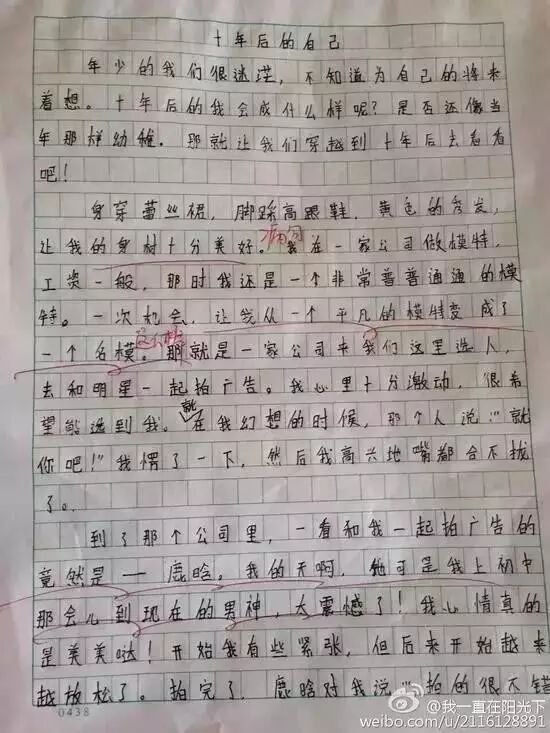 十年后的自己
年少的我们很迷茫，不知道为自己的将来
着想。十年后的我会成什么样呢？是否还像当
年那样幼稚。那就让我们穿越到十年后去看看
吧！
身穿蕾丝裙，脚踩高跟鞋，黄色的秀发，
让我的身材十分美好。我在一家公司做模特，
病句
工资一般，那时我还是一个非常普普通通的模
特。一次机会，让我从一个平凡的模特变成了
一个名模。那就是一家公司来我们这里选人，
去和明星一起拍广告。我心里十分激动，很希
望能选到我。就在我幻想的时候，那个人说："就
你吧！"我愣了一下，然后我高兴地嘴都合不拢
了。
到了那个公司里，一看和我一起拍广告的
竟然是——鹿晗。我的天啊，他可是我上初中
那会儿到现在的男神，太震憾了！我心情真的
是美美哒！开始我有些紧张，但后来开始越来
越放松了。拍完了，鹿晗对我说"拍的很不错
0438
@我一直在阳光下
weibo.com/u/2116128891